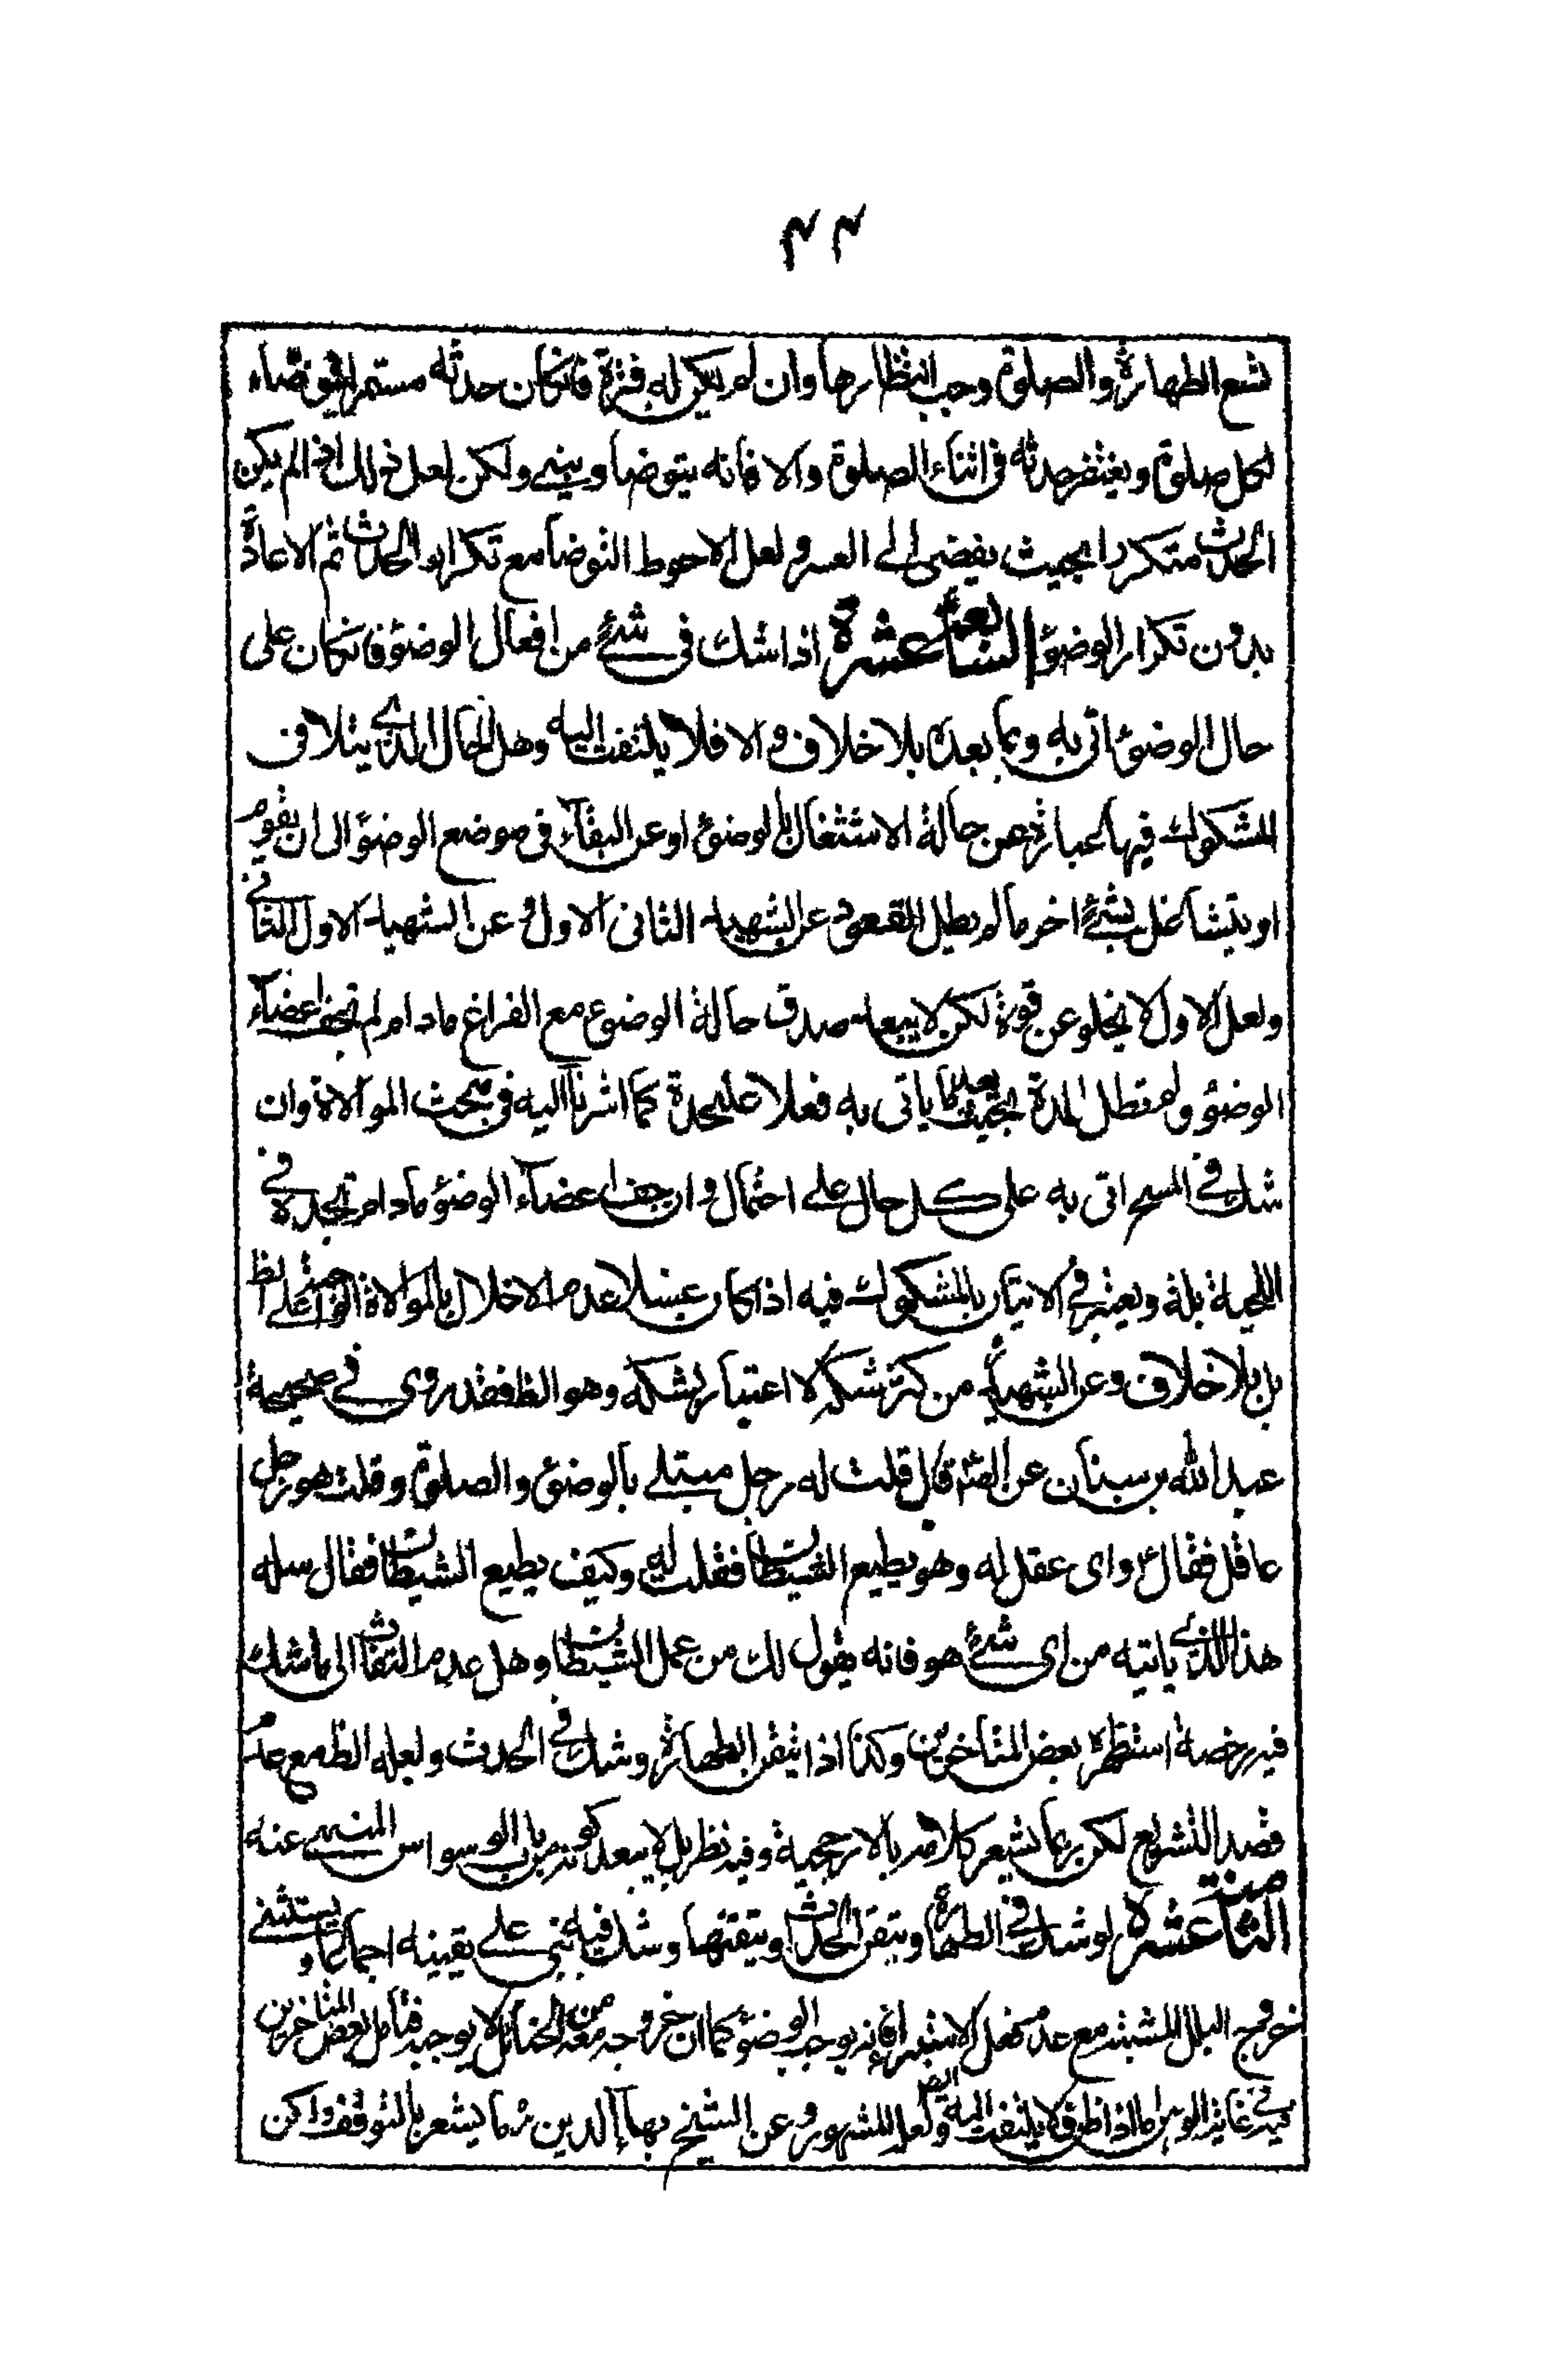 ۴۴
تسع الطهارة والصلوة وجب انتظارها وان لم يكن له فترة فانكان حدثه مستمرا فيتوضاء
لكل صلوة ويغتفر حدثه فى اثناء الصلوة والا فانه يتوضا ويبنے ولكن لعل ذلك اذا لم يكن
الحدث متكررا بحيث يفضى الى العسر ولعل الاحوط التوضا مع تكرار الحدث ثم الاعادة
بدون تكرار الوضوء السابعة عشرة اذا شك فى شئ من افعال الوضوء فانكان على
حال الوضوء اتى به وبما بعده بلا خلاف والا فلا يلتفت اليه وهل الحال الذي يتلافى
المشكوك فيها عبارة عن حالة الاشتغال بالوضوء او عن البقاء فى موضع الوضوء الى ان يقوم
او يتشاغل بشئ اخر ما لم يطل القعود عن الشهيد الثانى الاول وعن الشهيد الاول الثانے
ولعل الاول لا يخلو عن قوة لكن لا يبعد صدق حالة الوضوء مع الفراغ مادام لم تجف اعضاء
الوضوء ولم تطل المدة بحيث يعد ما ياتى به فعلا عليحدة كما اشرنا اليه فى مبحث الموالاة وان
شك فے المسح اتى به على كل حال علے احتمال وان جف اعضاء الوضوء مادام تجده فے
اللحية بلة ويعتبر فے الاتيان بالمشكوك فيه اذا كان غسلا عدم الاخلال بالموالاة علے الظ
بل بلا خلاف وعن الشهيد من كثر شكه لا اعتبار لشكه وهو الظ فقد روى فے صحيحة
عبد الله بن سنان عن الصم قال قلت له رجل مبتلے بالوضوء والصلوة وقلت هو رجل
عاقل فقال واى عقل له وهو يطيع الشيطان فقلت له وكيف يطيع الشيطان فقال سله
هذا الذي ياتيه من اى شئ هو فانه يقول لك من عمل الشيطان وهل عدم التفات الى ما شك
فيه رخصة استظهره بعض المتاخرين وكذا اذا تيقن الطهارة وشك فے الحدث ولعله الظ مع عدم
قصد التشريع لكن ربما يشعر كلامهم بالارجحية وفيه نظر بل لا يبعد كونه من باب الوسواس المنهے عنه
الثامنة عشرة لو شك فے الطهارة وتيقن الحدث او تيقنها وشك فيه بنى علے يقينه اجماعا ويستثنے
خروج البلل المشتبه مع عدم فعل الاستبراء فانه يوجب الوضوء كما ان خروجه معه من الخنثى لا يوجبه فتأمل بعض المتاخرين
فيه فے غاية الوهن اما اذا ظن فلا يلتفت اليه ايضا ولعله المشهور وعن الشيخ بهاء الدين ره ما يشعر بالتوقف ولكن